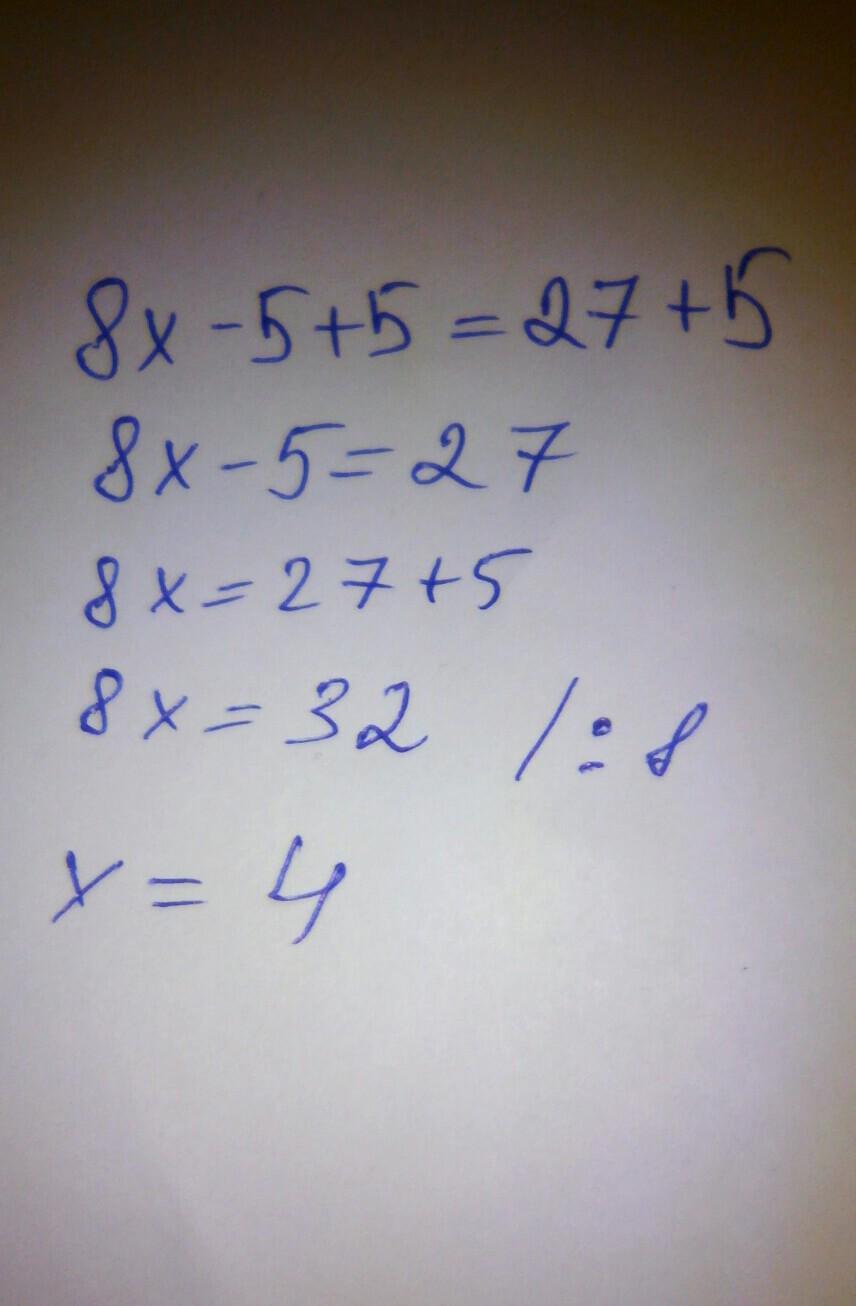 8x-5+5=27+5
8x-5=27
8x=27+5
8x=32 /:8
x=4